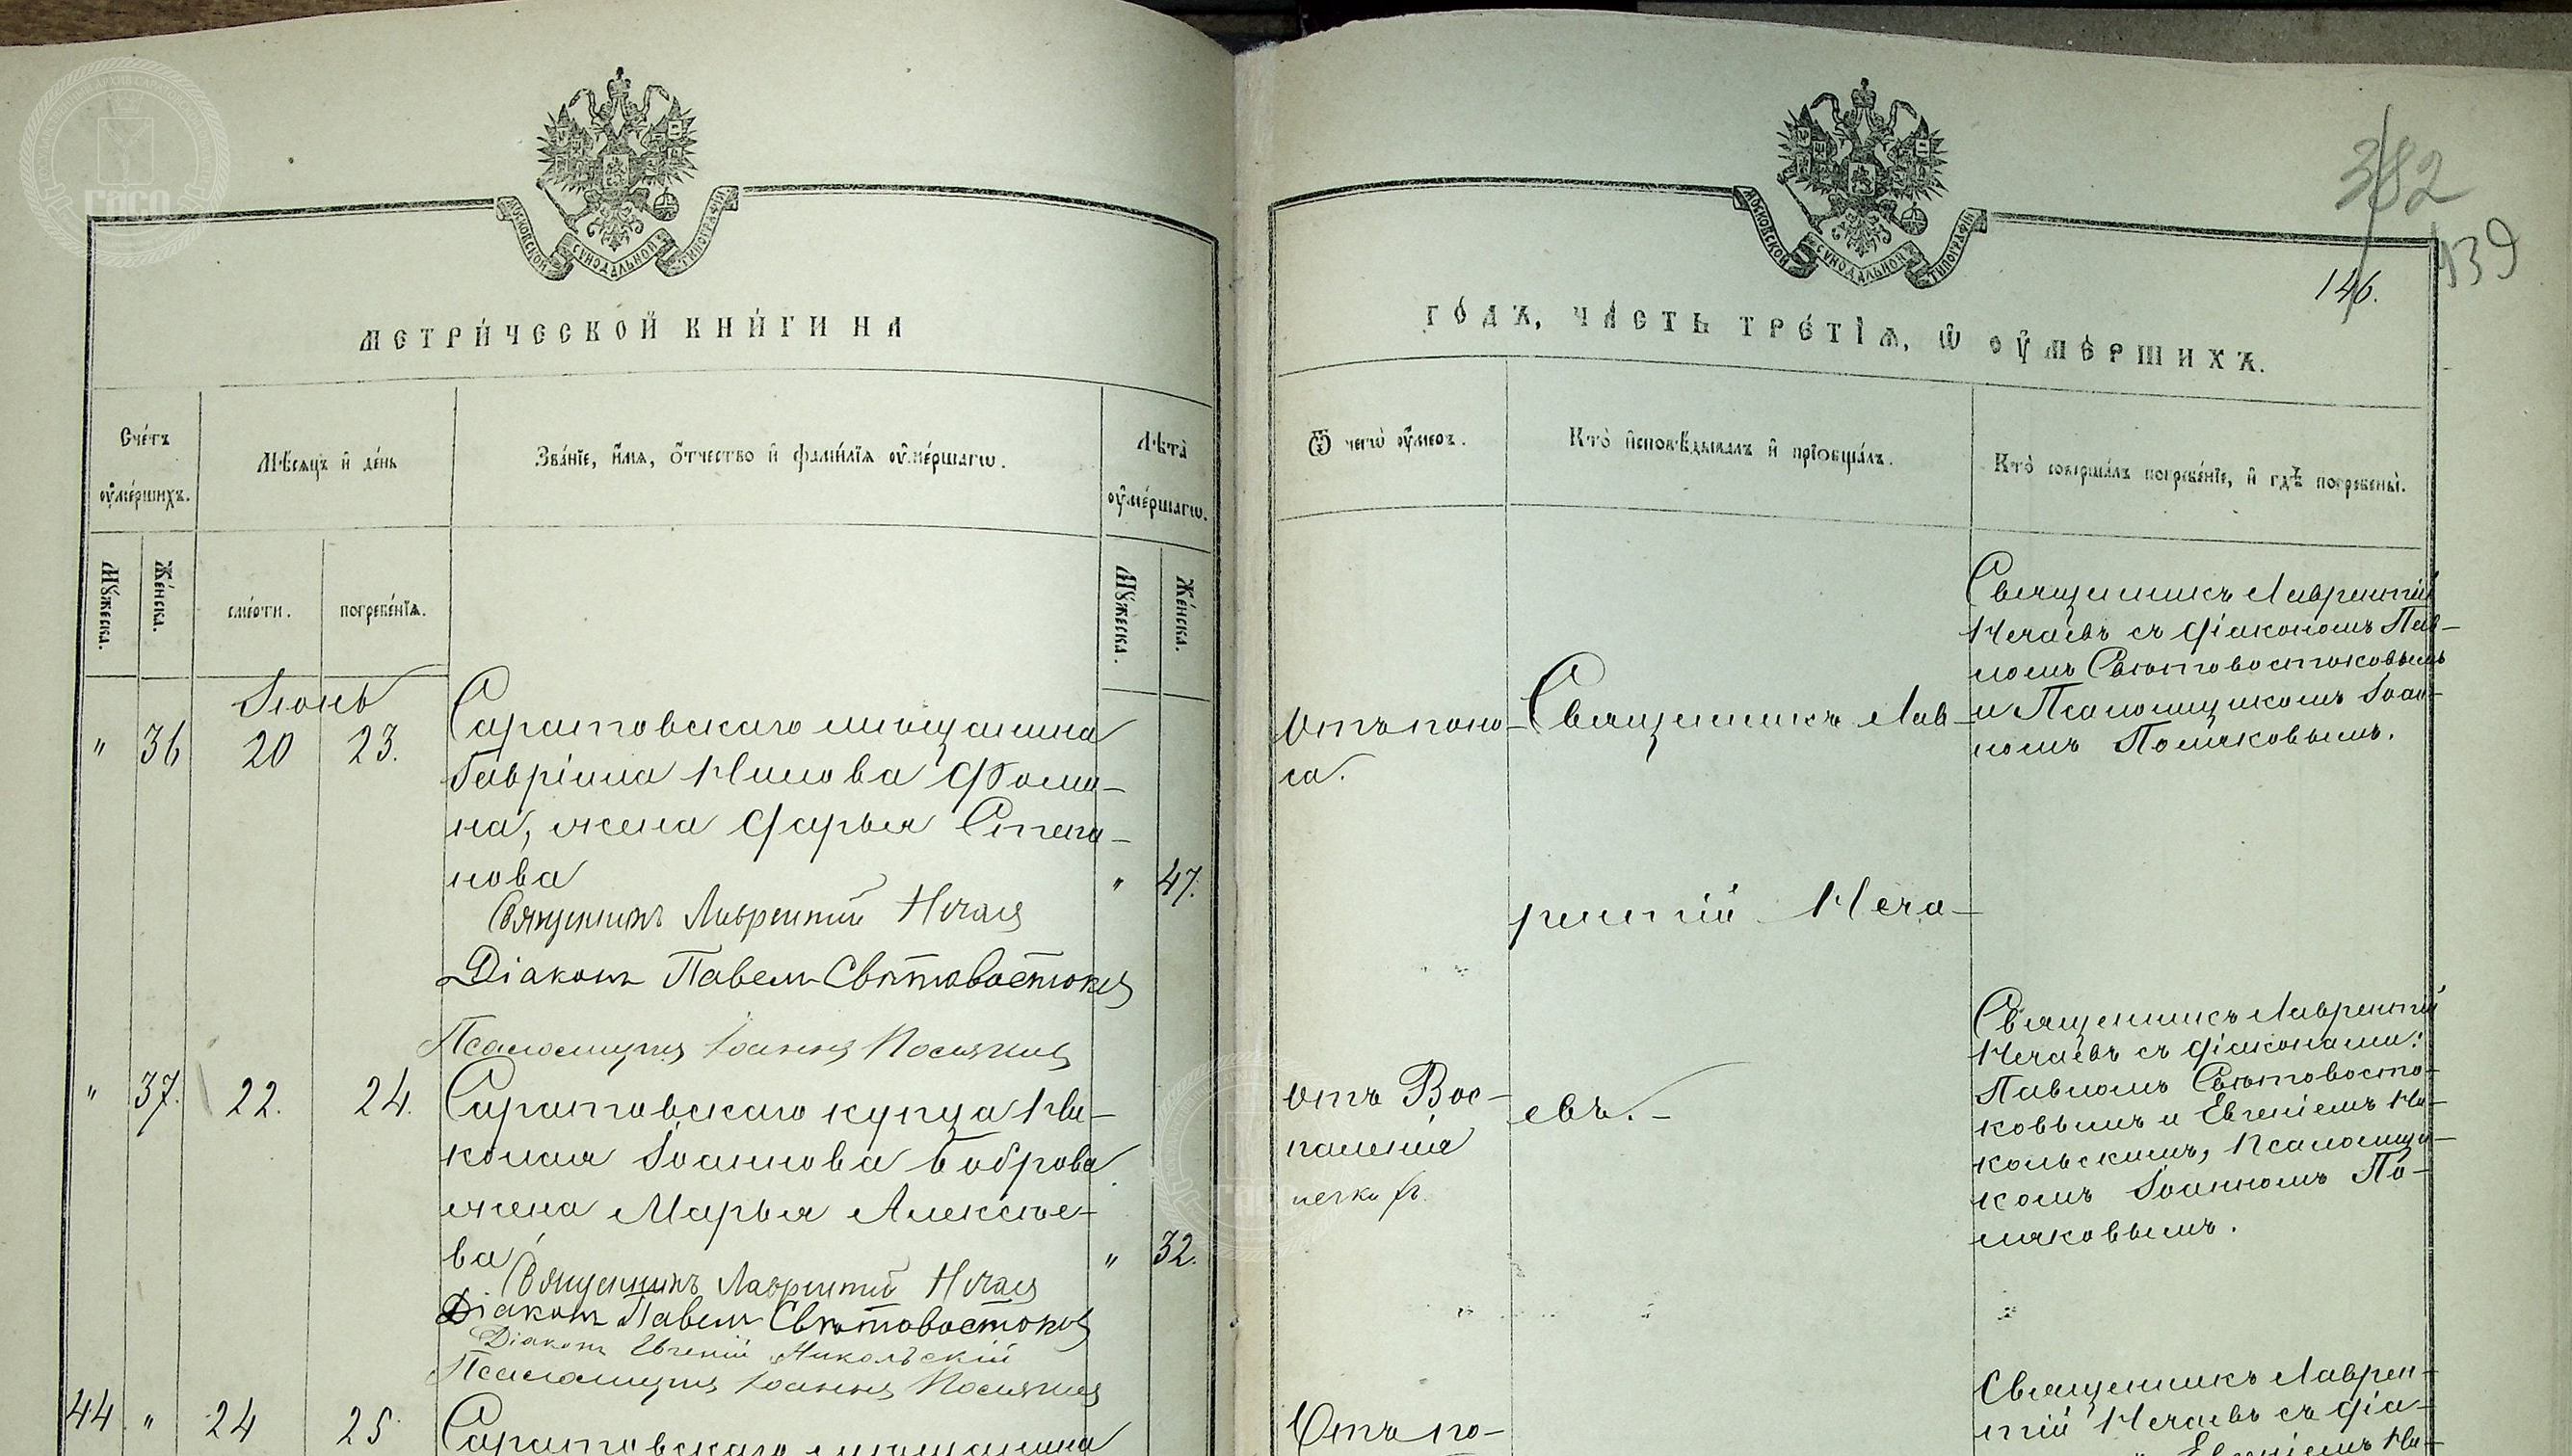 МОСКОВСКОЙ СѴНОДАЛЬНОЙ ТИПОГРАФІИ
МЕТРИ́ЧЕСКОЙ КНИ́ГИ НА
Сче́тъ ᲂу҆ме́ршихъ.
Мѣ́сяцъ и҆ де́нь
Зва́нїе, и҆́мѧ, ѻ҆́тчество и҆ фами́лїѧ ᲂу҆ме́ршагѡ.
Лѣта̀ ᲂу҆ме́ршагѡ.
Мꙋ́жеска.
Же́нска.
сме́рти.
погребе́нїѧ.
Мꙋ́жеска.
Же́нска.
Іюнь
" 36 20 23.
Саратовскаго мѣщанина
Гавріила Нилова Ѳоми-
на, жена Дарья Степа-
нова " 47.
Священникъ Лаврентій Нечаев
Діаконъ Павелъ Свѣтовостоковъ
Псаломщикъ Іоаннъ Посляковъ
" 37. 22. 24.
Саратовскаго купца Ни-
колая Іоаннова Боброва
жена Марья Алексѣе-
ва " 32.
Священникъ Лаврентій Нечаев
Діаконъ Павелъ Свѣтовостоковъ
Діаконъ Евгеній Никольскій
Псаломщикъ Іоаннъ Посляковъ
44 " 24 25
Саратовскаго мѣщанина
МОСКОВСКОЙ СѴНОДАЛЬНОЙ ТИПОГРАФІИ
382
139
146.
ГО́ДЪ, ЧА́СТЬ ТРЕ́ТЇѦ, Ѡ҆ ОУ҆МЕ́РШИХЪ.
Ѿ чегѡ̀ ᲂу҆́меръ.
Кто̀ и҆сповѣ́дывалъ и҆ прїѻбща́лъ.
Кто̀ соверша́лъ погребе́нїе, и҆ гдѣ̀ погребены̀.
Отъ поно-
са.
Священникъ Лав-
рентій Неча-
евъ.-
Священникъ Лаврентій
Нечаевъ съ діакономъ Пав-
ломъ Свѣтовостоковымъ
и Псаломщикомъ Іоан-
номъ
Отъ Вос-
паленія
легкихъ.
Священникъ Лаврентій
Нечаевъ съ діаконами:
Павломъ Свѣтовосто-
ковымъ и Евгеніемъ Ни-
кольскимъ, Псаломщи-
комъ Іоанномъ По-
ляковымъ.
Отъ по-
Священникъ Лаврен-
тій Нечаевъ съ діа-
Евгеніемъ Ни-